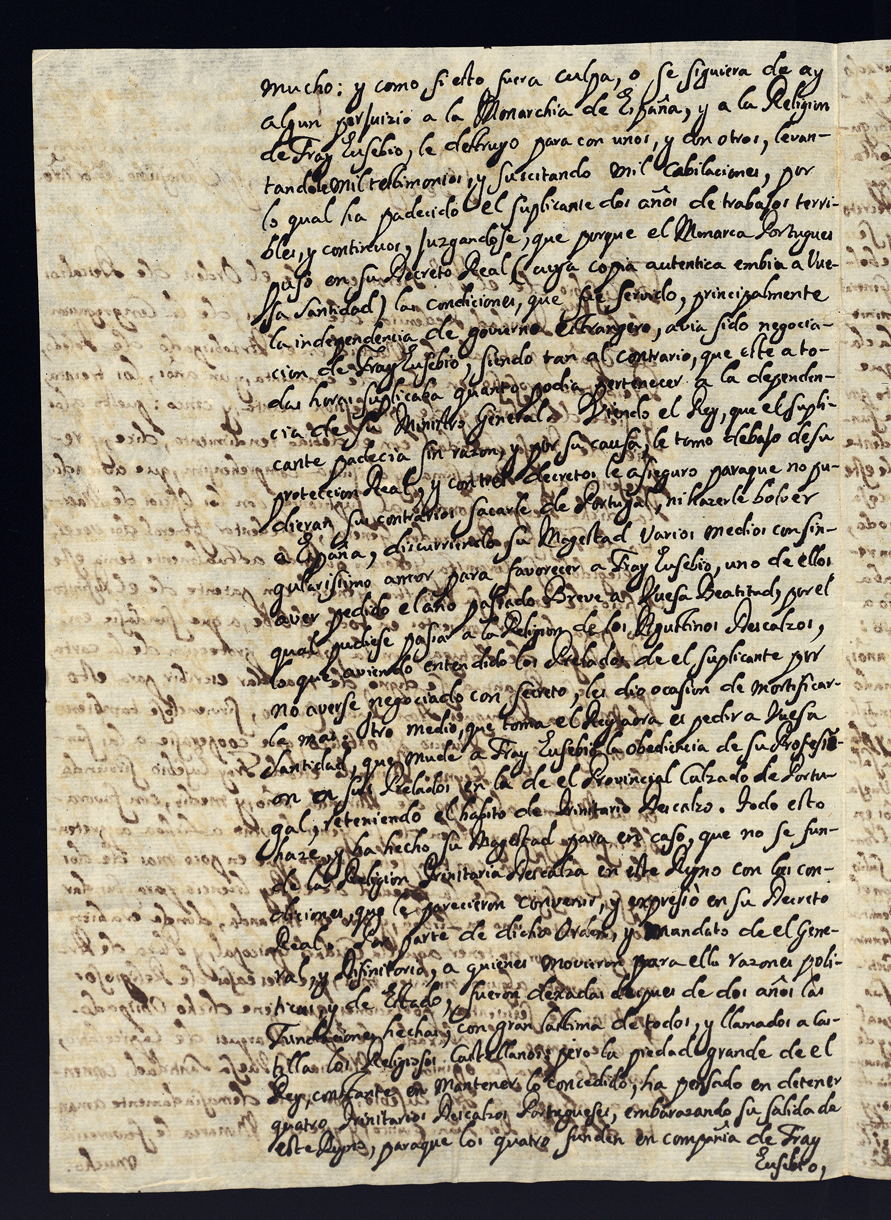 mucho: y como si esto fuera culpa, o se siguiera de ay
algun perjuizio a la Monarchia de España, y a la Religion
de Fray Eusebio, le destruyo para con unos, y con otros, levan-
tandole mil testimonios, y suscitando mil cabilaciones, por
lo qual ha padecido el suplicante dos años de trabajos terri-
bles, y continuos, juzgandose, que porque el Monarca Portugues
puso en su Decreto Real (cuya copia autentica embia a Vue-
ssa Santidad) las condiciones, que fue servido, principalmente
la independencia de govierno estrangero, avia sido negocia-
cion de Fray Eusebio, siendo tan al contrario, que este a to-
das horas suplicaba quanto podia pertenecer a la dependen-
cia de su Ministro General. Viendo el Rey, que el supli-
cante padecia sin razon, y por su causa, le tomo debajo de su
proteccion Real, y con tres decretos le aseguro paraque no pu-
dieran sus contrarios sacarle de Portugal, ni hazerle bolver
a España, discurriendo su Magestad varios medios con sin-
gularissimo amor para favorecer a Fray Eusebio, uno de ellos
aver pedido el año passado Breve a Vuesa Beatitud, por el
qual pudiese pasar a la Religion de los Agustinos Descalzos,
lo que aviendo entendido los Prelados de el suplicante por
no averse negociado con secreto, les dio ocasion de mortificar-
le mas. Otro medio, que toma el Rey aora es pedir a Vuesa
Santidad, que mude a Fray Eusebio la obediencia de su Profesi-
on en sus Prelados en la de el Provincial Calzado de Portu-
gal, reteniendo el habito de Trinitario Descalzo. Todo esto
haze, y ha hecho su Magestad para en caso, que no se fun-
de la Religion Trinitaria Descalza en este Reyno con las con-
diciones, que le parecieron convenir, y expresò en su Decreto
Real. Por parte de dicha Orden, y mandato de el Gene-
ral, y Difinitorio, a quienes movieron para ello razones poli-
ticas, y de Estado, fueron dexadas despues de dos años las
Fundaciones hechas, con gran lastima de todos, y llamados a Cas-
tilla los Religiosos Castellanos; pero la piedad grande de el
Rey, constante en mantener lo concedido, ha pensado en detener
quatro Trinitarios Descalzos Portugueses, embarazando su salida de
este Reyno, paraque los quatro funden en compañia de Fray
Eusebio,